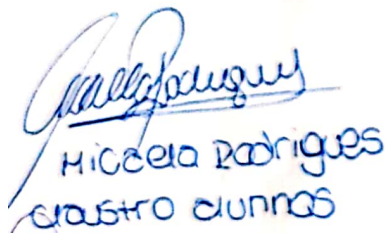 Micaela Rodrigues
claustro alumnos